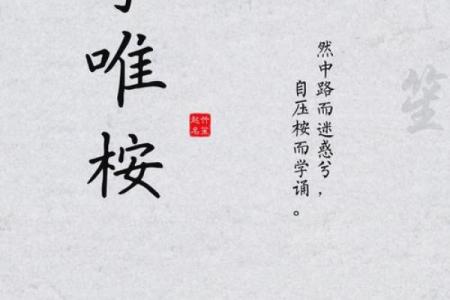 笙
然中路而迷惑兮，
自压桉而学诵。
竹笙
起名
唯桉